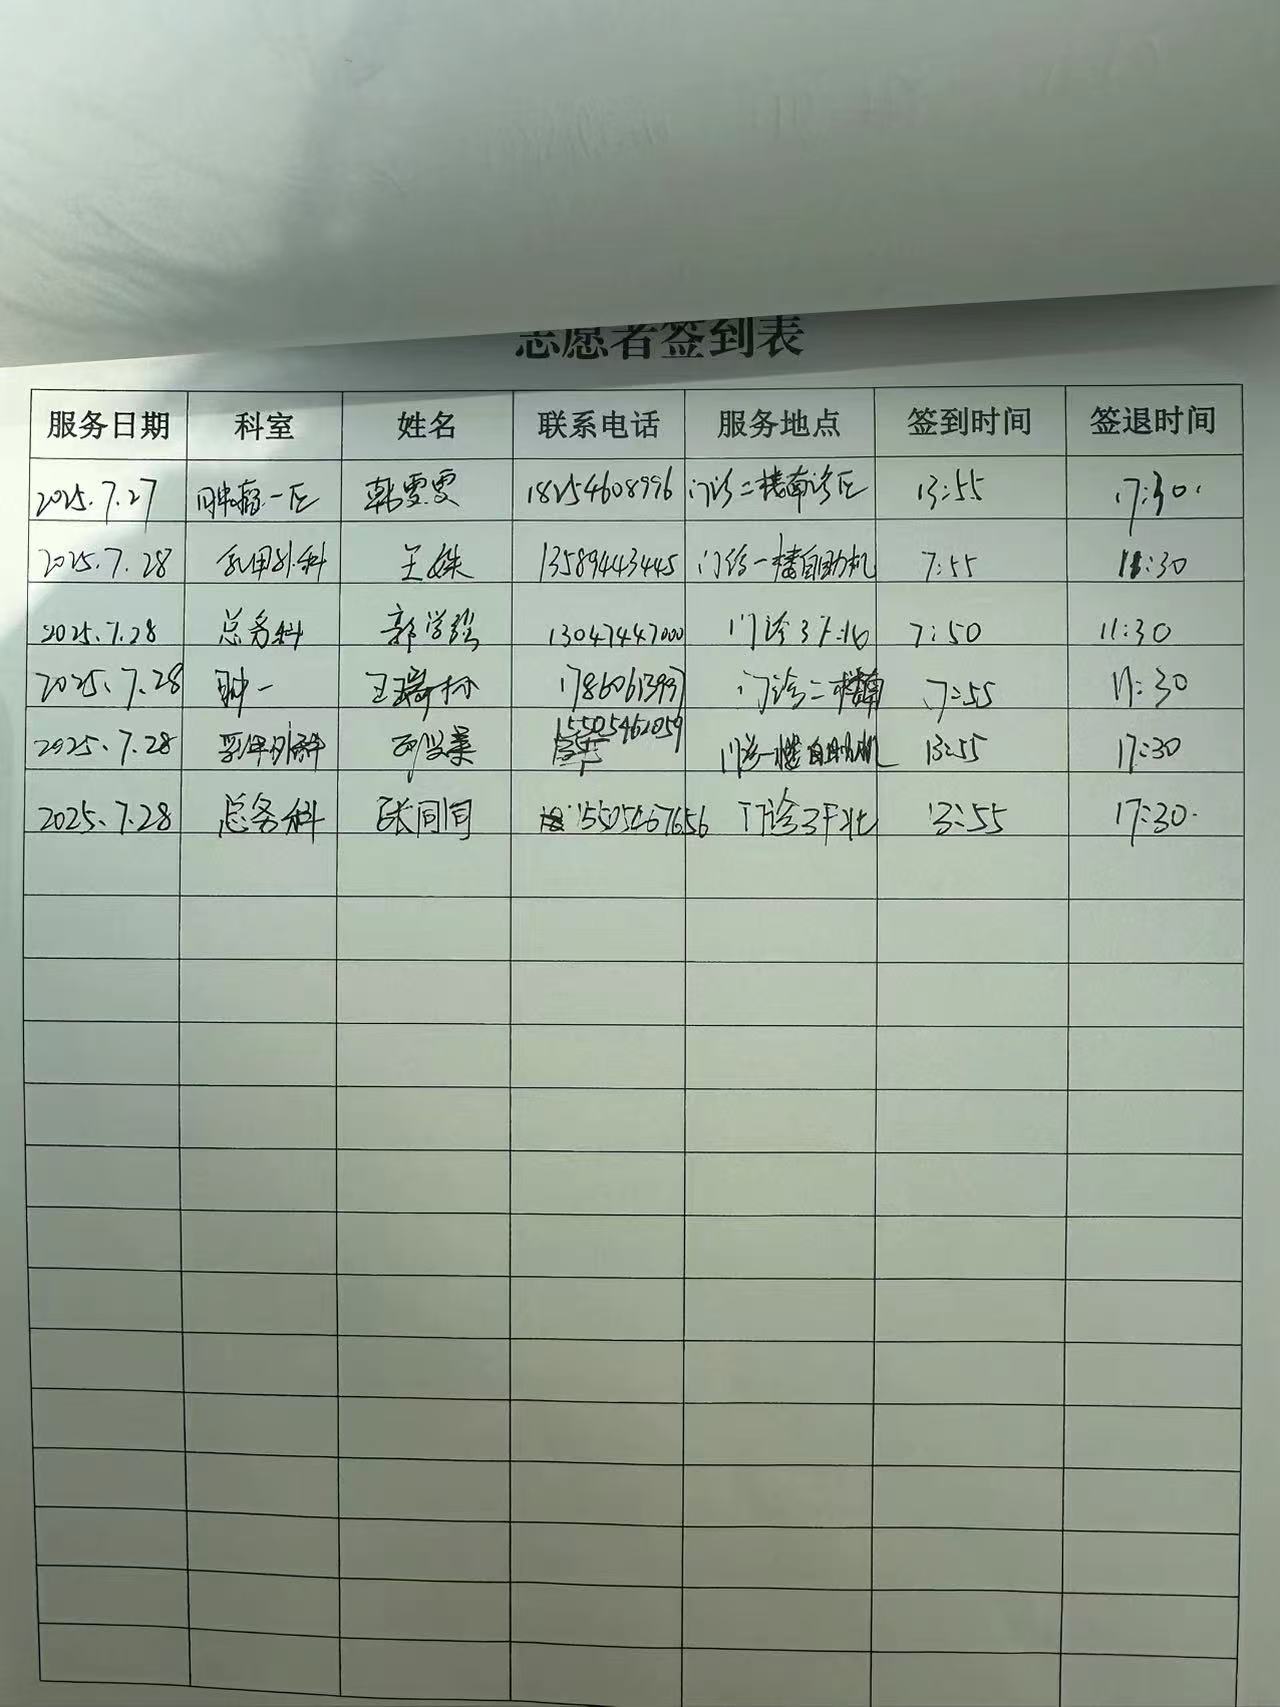 志愿者签到表
服务日期 科室 姓名 联系电话 服务地点 签到时间 签退时间
2025.7.27 肿瘤一区 韩雯雯 18254608996 门诊二楼南诊区 13:55 17:30.
2025.7.28 乳甲外科 王姝 13589443445 门诊一楼自助机 7:55 11:30
2025.7.28 总务科 郭学 13047447000 门诊3F北 7:50 11:30
2025.7.28 肿一 王瑞 17860613997 门诊二楼南 7:55 11:30
2025.7.28 乳甲外科 15505462059 门诊一楼自助机 13:55 17:30
2025.7.28 总务科 张同同 15505467656 门诊3F北 13:55 17:30.